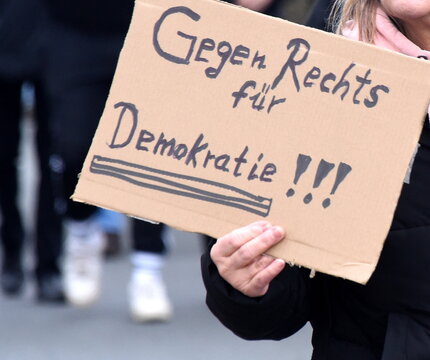 Gegen Rechts
für
Demokratie !!!